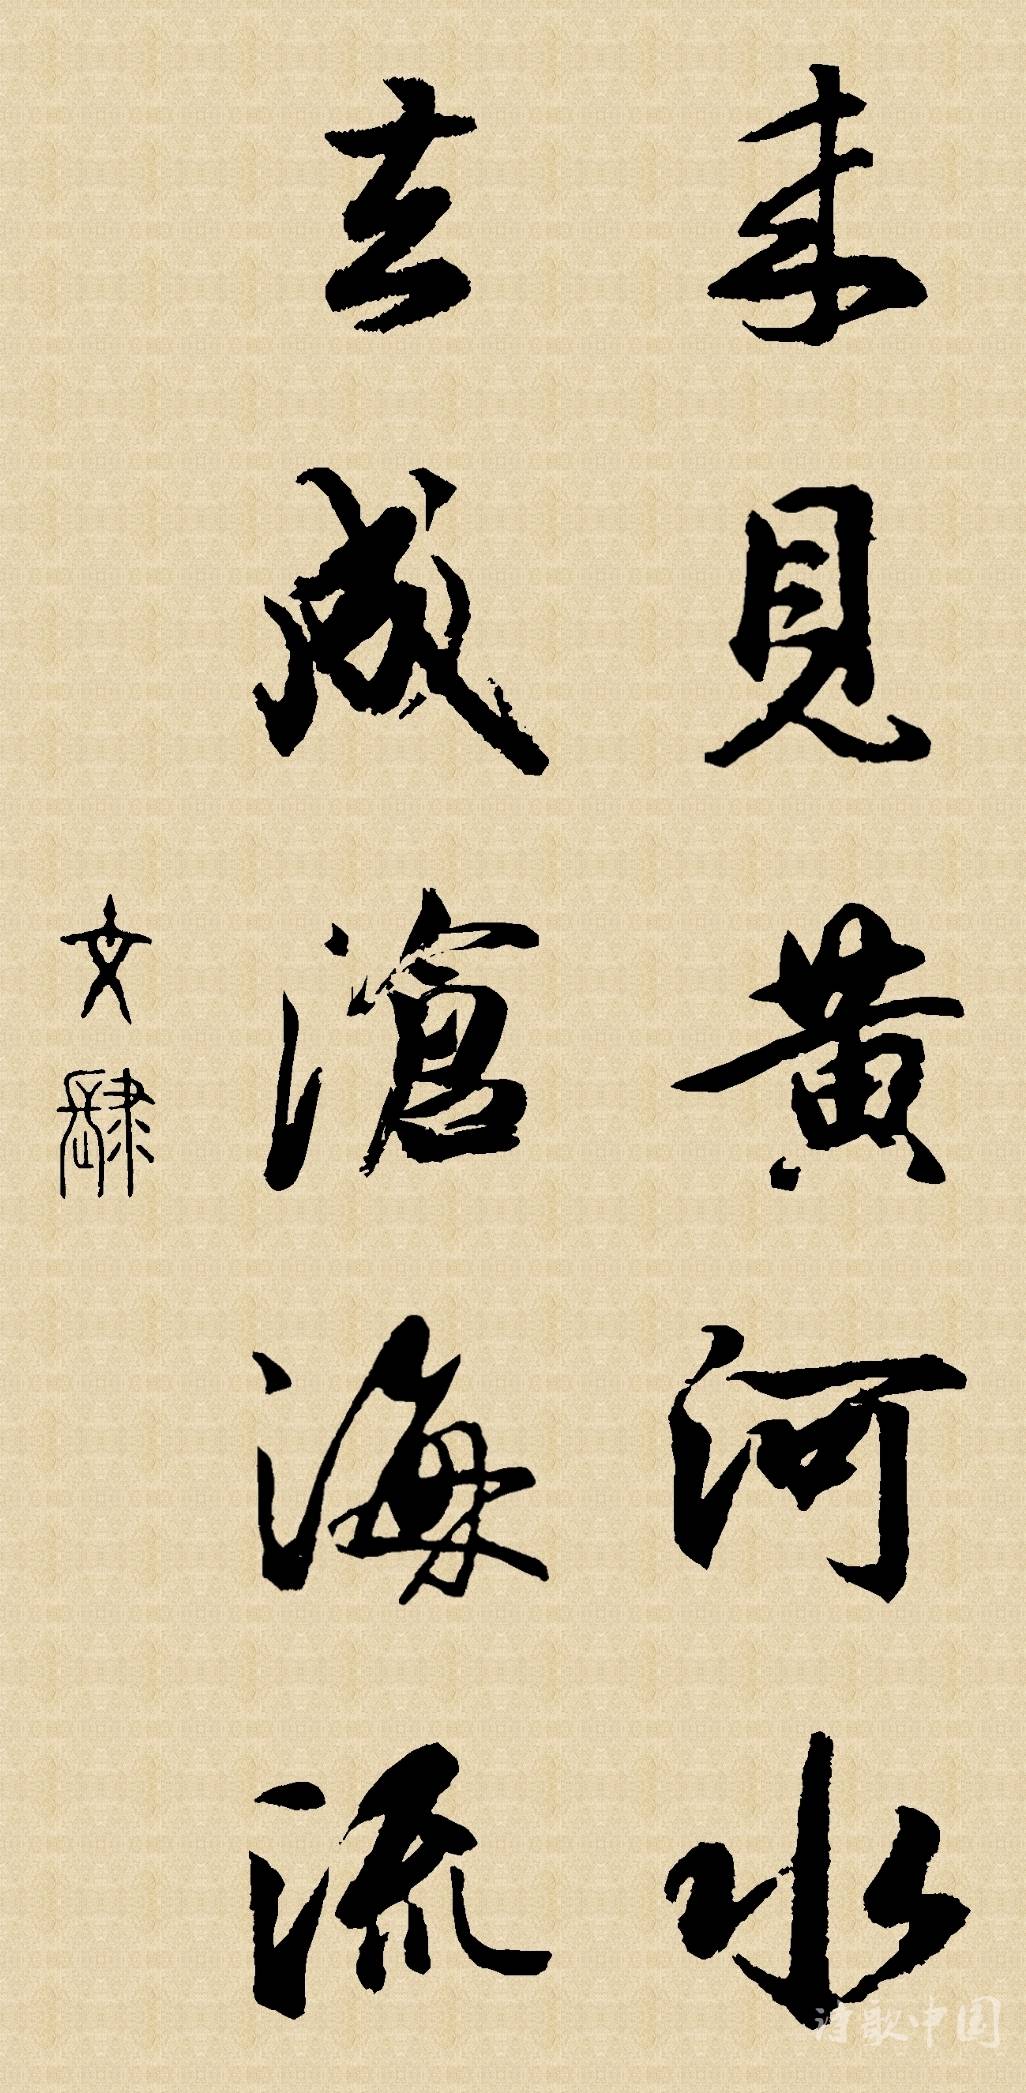 来見黄河水
去成滄海流
文肆
诗歌中国